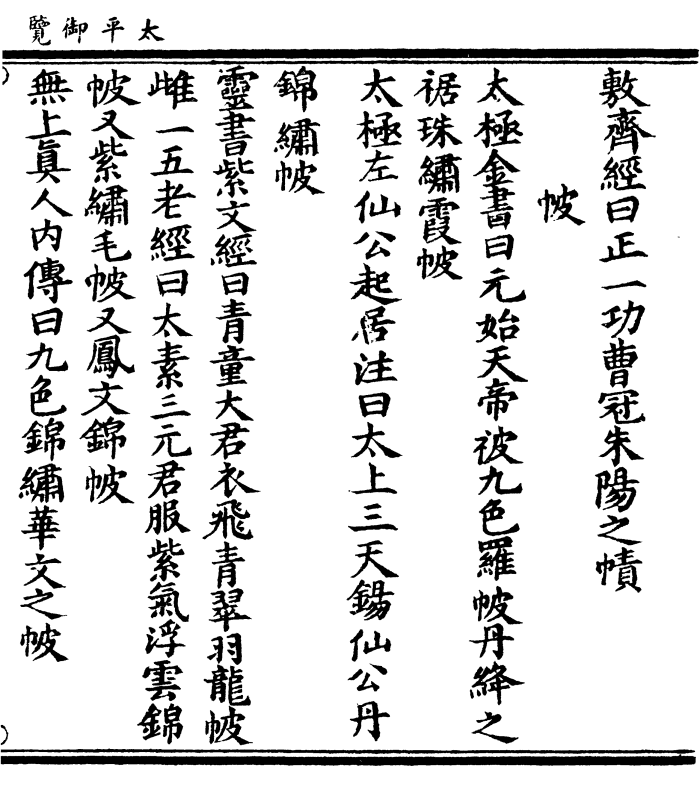 太平御覽
敷齊經曰正一功曹冠朱陽之幘
帔
太極金書曰元始天帝被九色羅帔丹絳之
裾珠繡霞帔
太極左仙公起居注曰太上三天錫仙公丹
錦繡帔
靈書紫文經曰青童大君衣飛青翠羽龍帔
雌一五老經曰太素三元君服紫氣浮雲錦
帔又紫繡毛帔又鳳文錦帔
無上眞人內傳曰九色錦繡華文之帔